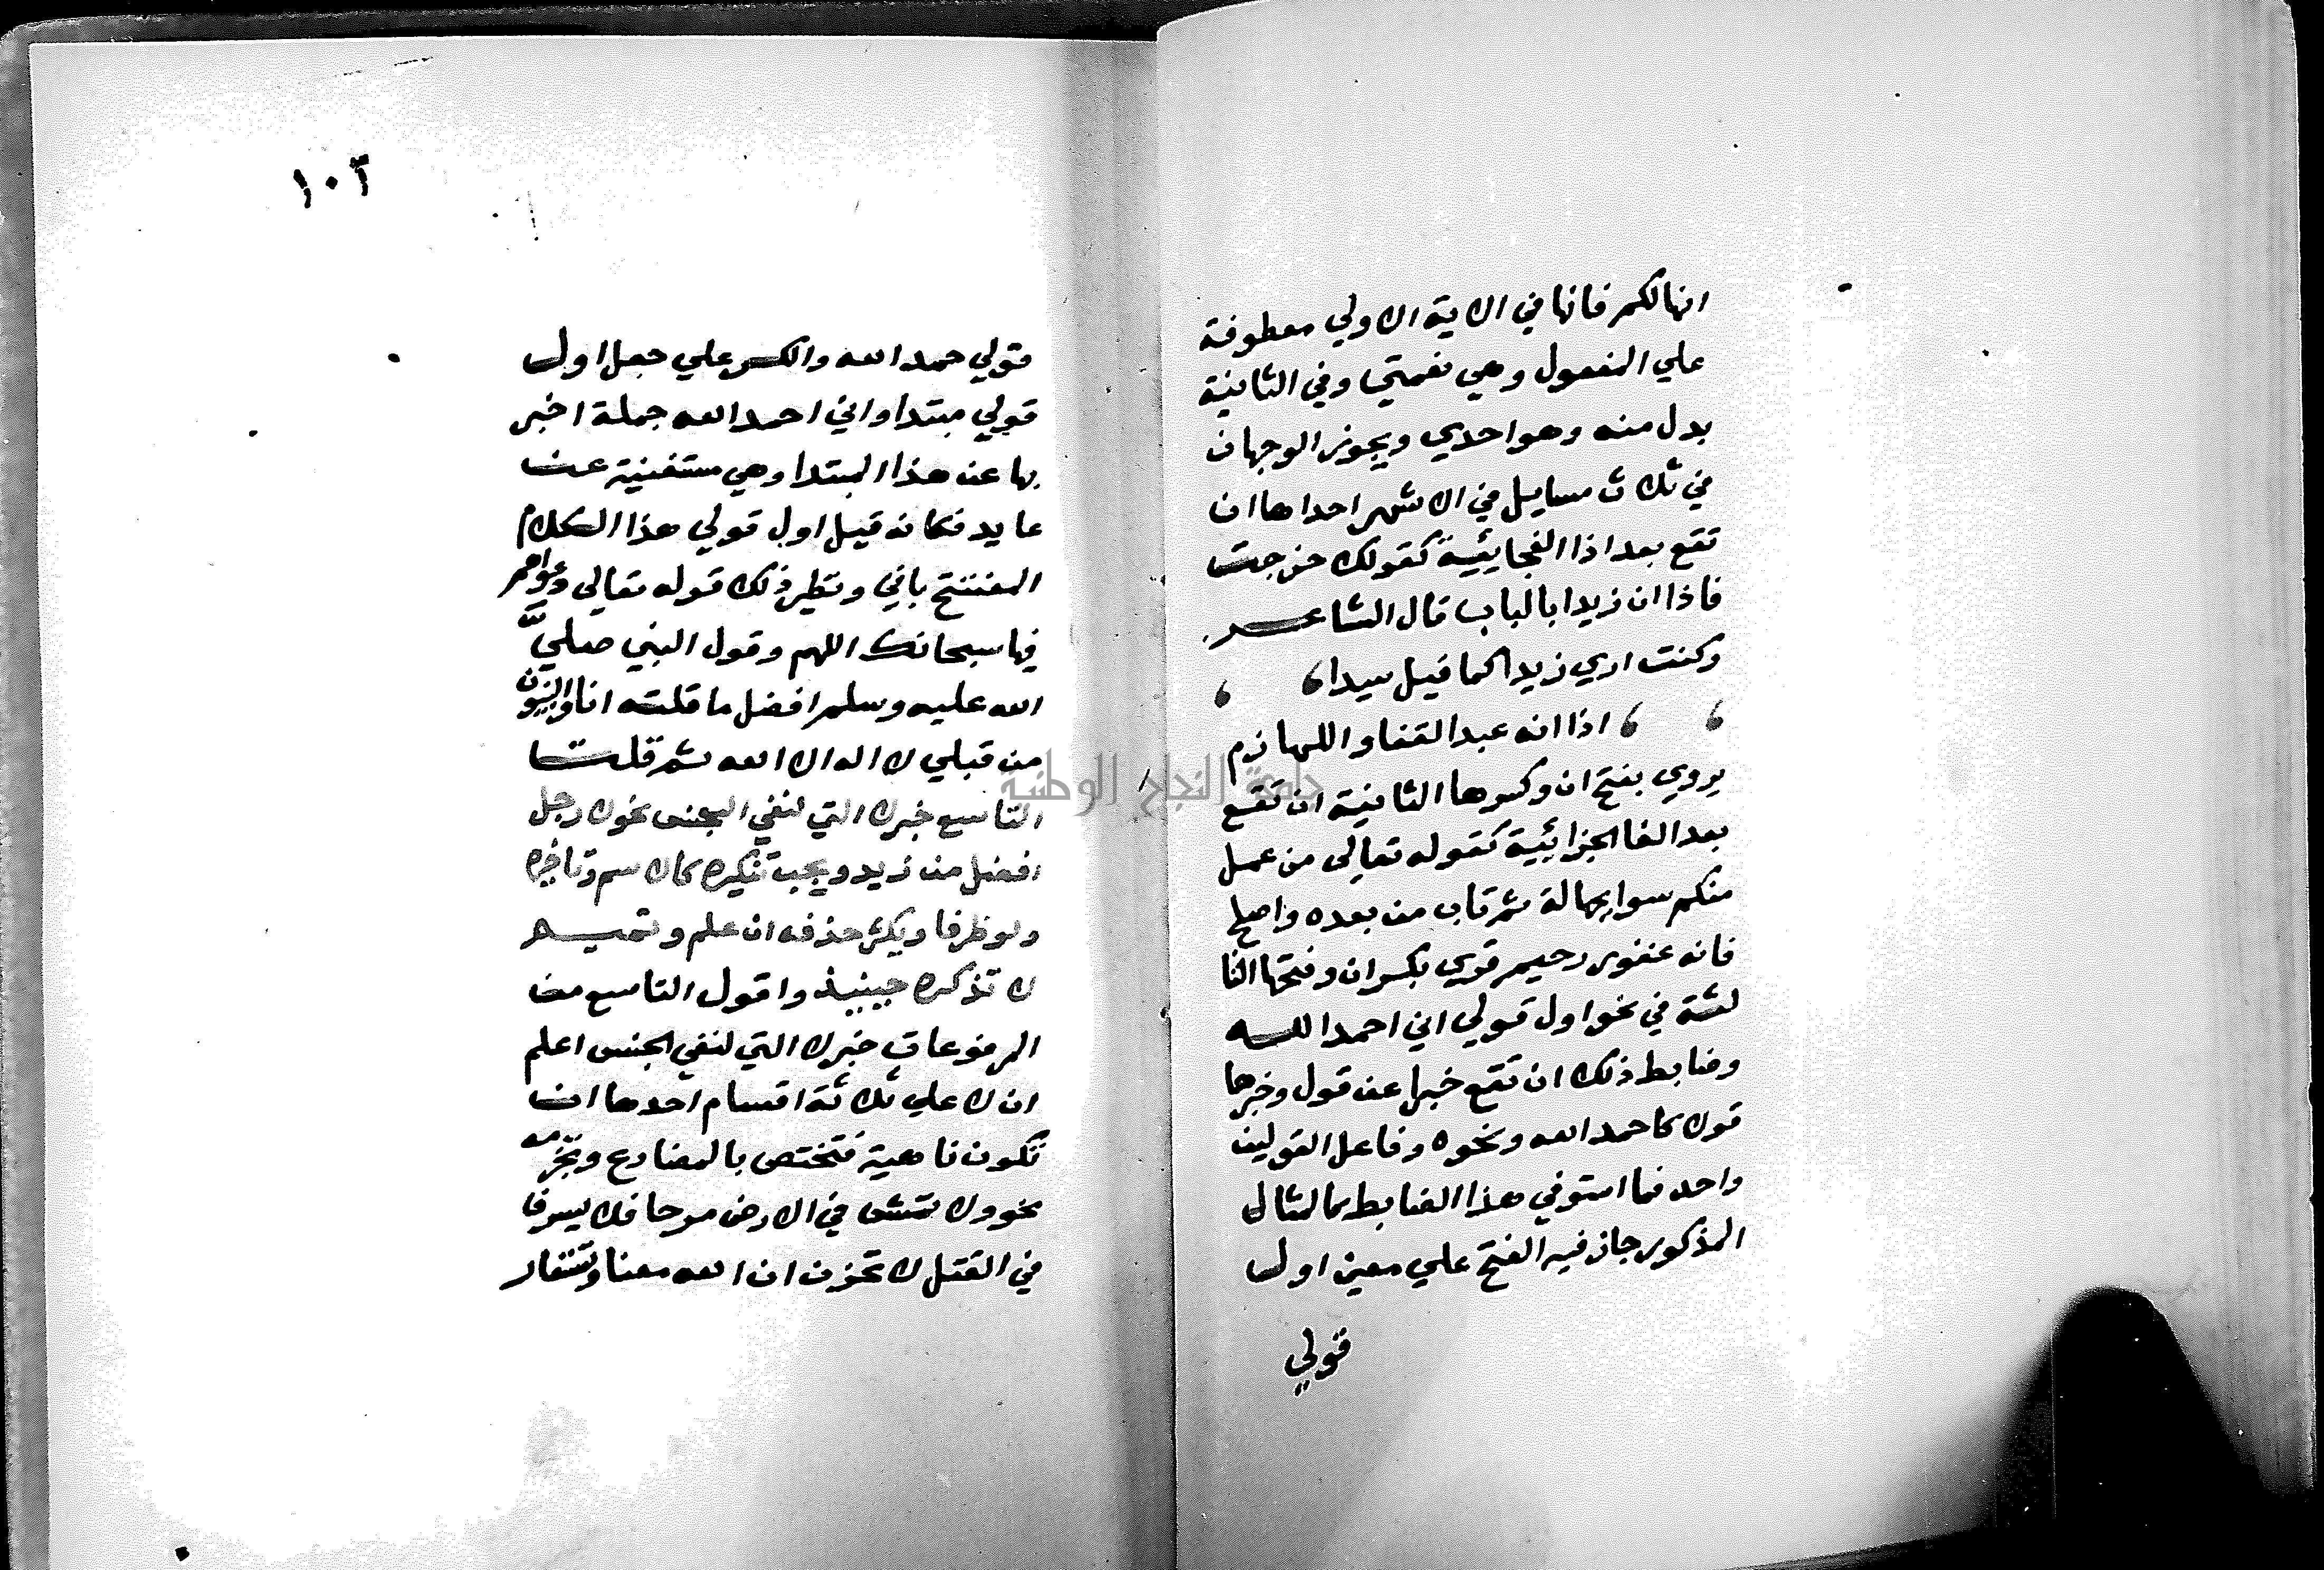 انها لكم فانها في الاية الاولي معطوفة
علي المفعول وهي نعمتي وفي الثانية
بدل منه وهو احدي ويجوز الوجهان
في ثلاث مسايل في الاشهر احداها ان
تقع بعد اذا الفجايئية كقولك خرجت
فاذا ان زيدا بالباب قال الشاعر
وكنت اري زيدا كما قيل سيدا
اذا انه عبد القفا واللهازم
يروي بفتح ان وكسرها الثانية ان تقع
بعد الفا الجزائية كقوله تعالى من عمل
منكم سوا بجهالة ثم تاب من بعده واصلح
فانه غفور رحيم قري بكسر ان وفتحها الثا
لثة في نحو اول قولي اني احمد الله
وضابط ذلك ان تقع خبرا عن قول وخبرها
قول كاحمد الله ونحوه وفاعل القولين
واحد فما استوفي هذا الضابط كالمثال
المذكور جاز فيه الفتح علي معني اول
قولي
١٠٣
قولي حمد الله والكسر علي جعل اول
قولي مبتدا واني احمد الله جملة اخبر
بها عن هذا المبتدا وهي مستغنية عن
عايد فكانه قيل اول قولي هذا الكلام
المفتتح باني ونظير ذلك قوله تعالي دعواهم
فيها سبحانك اللهم وقول النبي صلي
الله عليه وسلم افضل ما قلته انا والنبيون
من قبلي لا اله الا الله ثم قلت
التاسع خبر لا التي لنفي الجنس نحو لا رجل
افضل من زيد ويجب تنكيره كالاسم وتاخيره
ولو ظرفا ويكثر حذفه ان علم وتميم
لا تذكره حينيذ واقول التاسع من
المرفوعات خبر لا التي لنفي الجنس اعلم
ان لا علي ثلاثة اقسام احدها ان
تكون ناهية فتختص بالمضارع وتجزمه
نحو ولا تمش في الارض مرحا فلا يسرف
في القتل لا تحزن ان الله معنا وتستعار
جامعة النجاح الوطنية